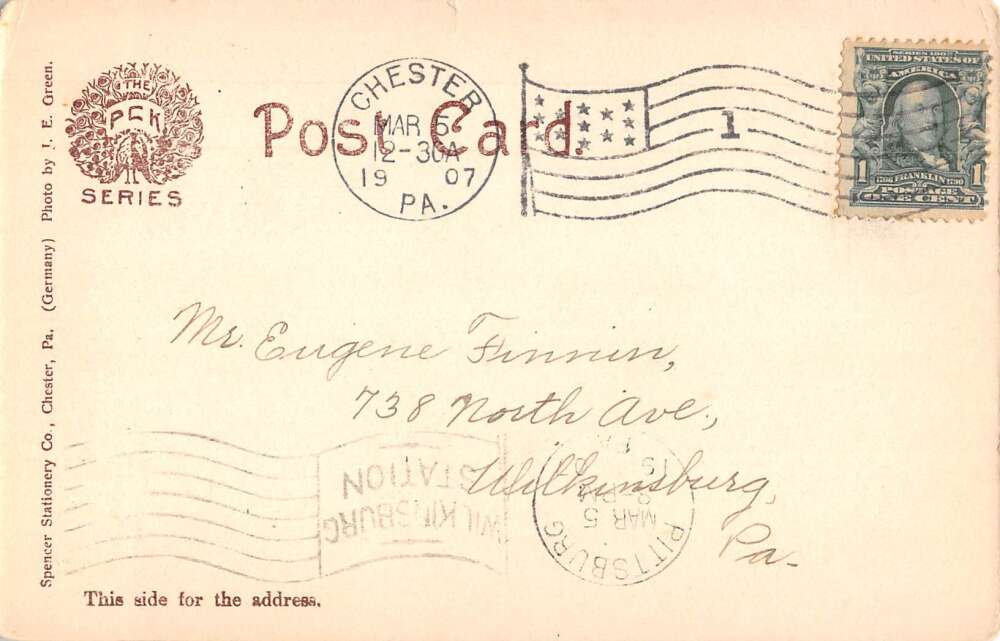 THE
PCK
SERIES
Post Card.
CHESTER
MAR 5
12-30A
19 07
PA.
1
SERIES 1902
UNITED STATES OF
AMERICA
1 1
1706 FRANKLIN 1790
POSTAGE
ONE CENT
Spencer Stationery Co., Chester, Pa. (Germany) Photo by J. E. Green.
Mr. Eugene Finnin,
738 North Ave.,
Wilkinsburg,
Pa.
WILKINSBURG
STATION
PITTSBURG
MAR 5
This side for the address.